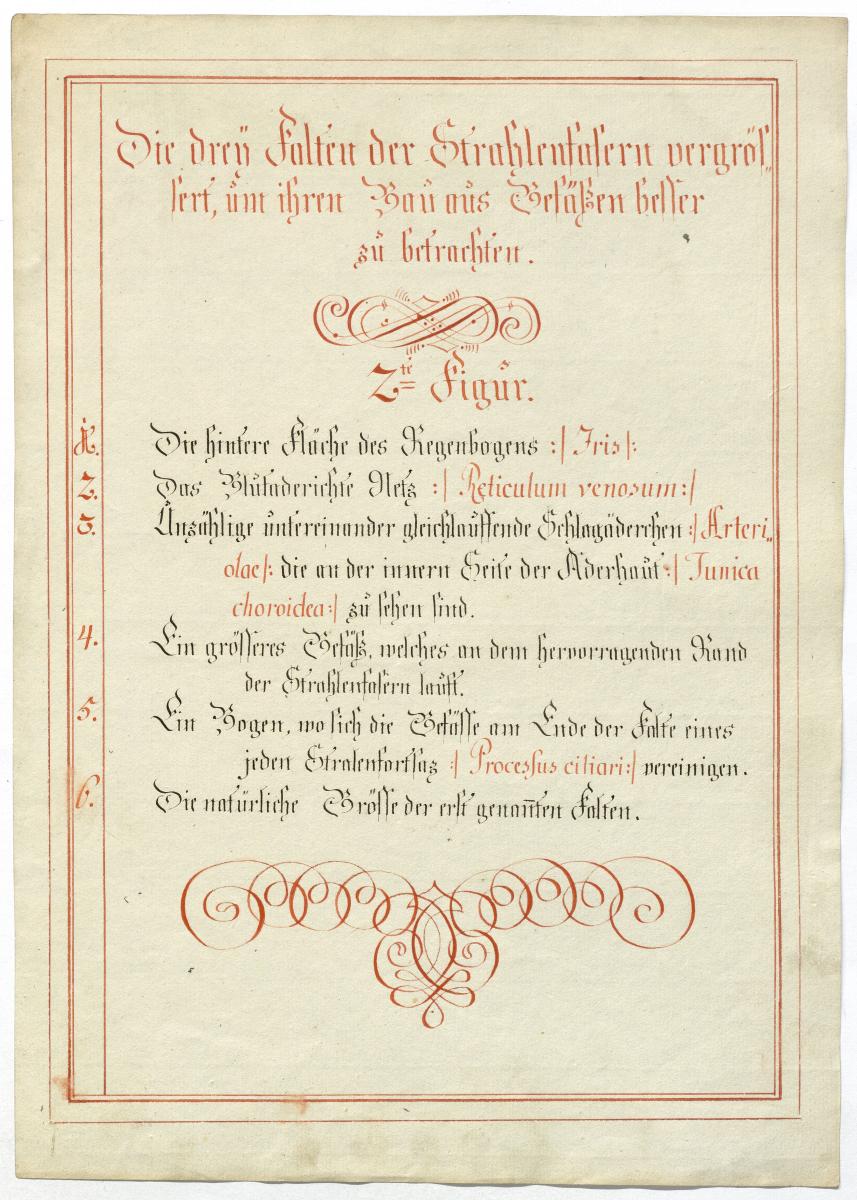 Die dreÿ Falten der Strahlenfasern vergrös„
sert, um ihren Bau aus Gefäßen besser
zu betrachten.
2te Figur.
1. Die hintere Fläche des Regenbogens :/ Iris /:
2. Das Blutaderichte Netz :/ Reticulum venosum :/
3. Unzählige untereinander gleichlauffende Schlagäderchen :/ Arteri„
olae /: die an der innern Seite der Aderhaut :/ Tunica
choroidea :/ zu sehen sind.
4. Ein grösseres Gefäß, welches an dem hervorragenden Rand
der Strahlenfasern lauft.
5. Ein Bogen, wo sich die Gefässe am Ende der Falte eines
jeden Stralenfortsaz :/ Processus ciliari :/ vereinigen.
6. Die natürliche Grösse der erst genan̄ten Falten.